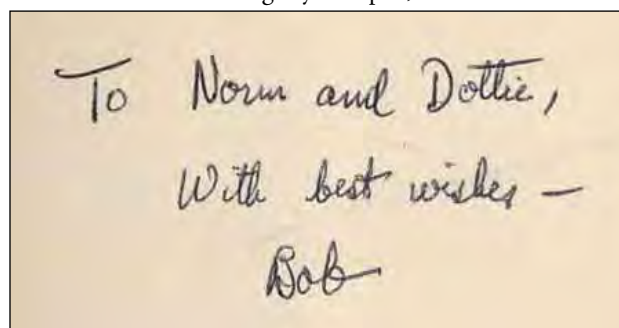 To Norm and Dottie,
With best wishes —
Bob